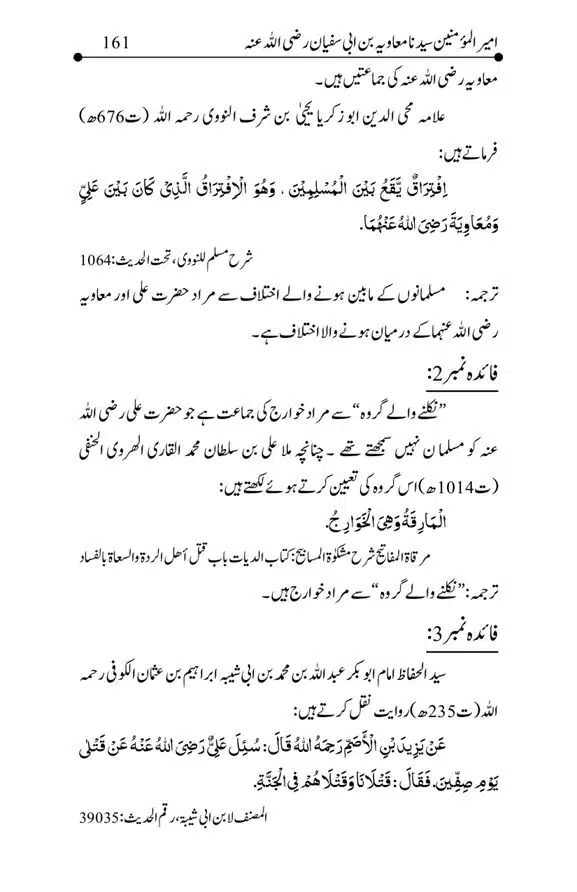 امیر المؤمنین سیدنا معاویہ بن ابی سفیان رضی اللہ عنہ 161
معاویہ رضی اللہ عنہ کی جماعتیں ہیں۔
علامہ محی الدین ابو زکریا یحییٰ بن شرف النووی رحمہ اللہ (ت676ھ)
فرماتے ہیں:
اِفْتِرَاقٌ یَّقَعُ بَیْنَ الْمُسْلِمِیْنَ ، وَھُوَ الْاِفْتِرَاقُ الَّذِیْ کَانَ بَیْنَ عَلِیٍّ
وَمُعَاوِیَةَ رَضِیَ اللہُ عَنْہُمَا.
شرح مسلم للنووی، تحت الحدیث:1064
ترجمہ: مسلمانوں کے مابین ہونے والے اختلاف سے مراد حضرت علی اور معاویہ
رضی اللہ عنہما کے درمیان ہونے والا اختلاف ہے۔
فائدہ نمبر2:
”نکلنے والے گروہ“ سے مراد خوارج کی جماعت ہے جو حضرت علی رضی اللہ
عنہ کو مسلمان نہیں سمجھتے تھے ۔ چنانچہ ملا علی بن سلطان محمد القاری الھروی الحنفی
(ت1014ھ) اس گروہ کی تعیین کرتے ہوئے لکھتے ہیں:
الْمَارِقَةُ وَھِیَ الْخَوَارِجُ.
مرقاۃ المفاتیح شرح مشکوٰۃ المصابیح: کتاب الدیات باب قتل أھل الردۃ والسعاۃ بالفساد
ترجمہ: ”نکلنے والے گروہ“ سے مراد خوارج ہیں۔
فائدہ نمبر3:
سید الحفاظ امام ابو بکر عبد اللہ بن محمد بن ابی شیبہ ابراہیم بن عثمان الکوفی رحمہ
اللہ (ت235ھ) روایت نقل کرتے ہیں:
عَنْ یَزِیدَ بْنِ الْأَصَمِّ رَحِمَهُ اللہُ قَالَ: سُئِلَ عَلِیٌّ رَضِیَ اللہُ عَنْهُ عَنْ قَتْلٰی
یَوْمِ صِفِّینَ. فَقَالَ : قَتْلَانَا وَقَتْلَاھُمْ فِی الْجَنَّةِ.
المصنف لابن ابی شیبۃ، رقم الحدیث:39035